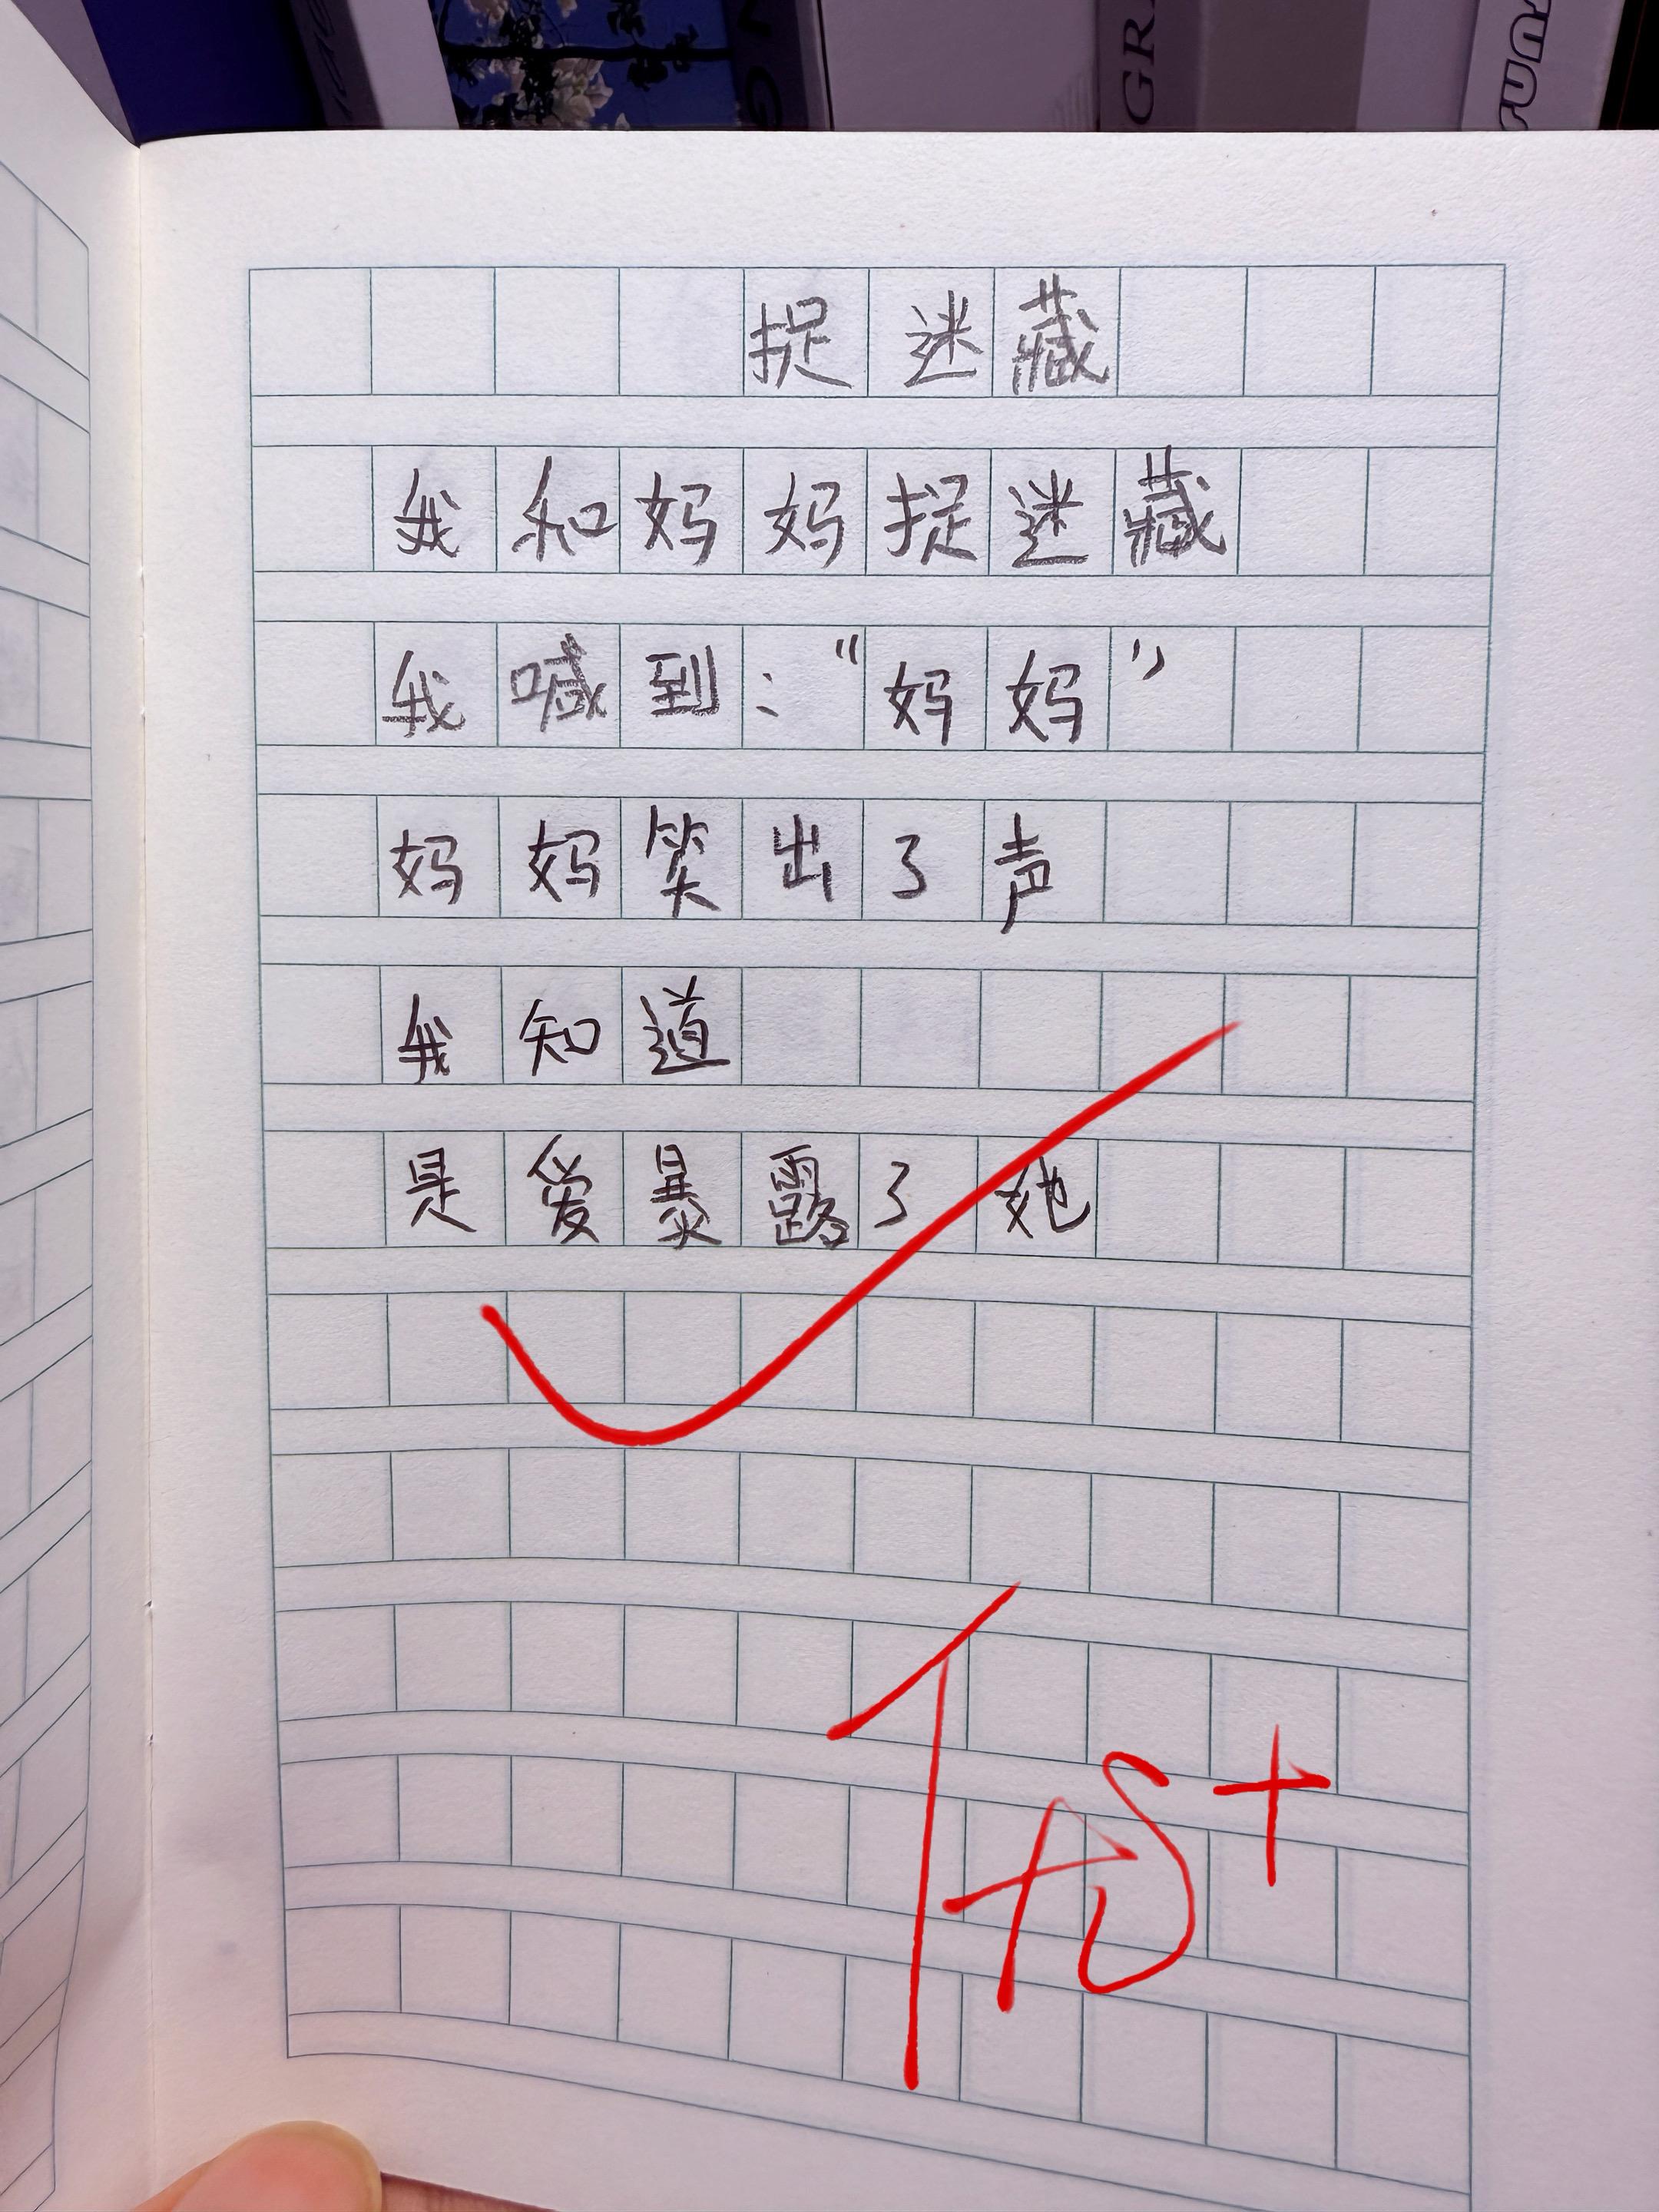 捉迷藏
我和妈妈捉迷藏
我喊到：“妈妈”
妈妈笑出了声
我知道
是爱暴露了她